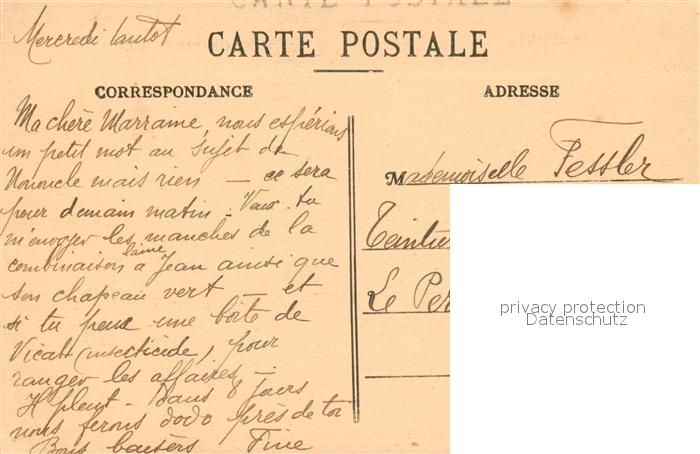 Mercredi tantot
CARTE POSTALE
CORRESPONDANCE
ADRESSE
Ma chère Marraine, nous espérions
un petit mot au sujet de
Nononcle mais rien — ce sera
pour demain matin. Veux-tu
m'envoyer les manches de la
combinaison laine à Jean ainsi que
son chapeau vert — et
si tu peux une boîte de
Vicat (insecticide) pour
ranger les affaires.
Il pleut. Dans 8 jours
nous ferons dodo près de toi
Bons baisers Fine
Mademoiselle Fessler
Teintu
Le Per
privacy protection
Datenschutz